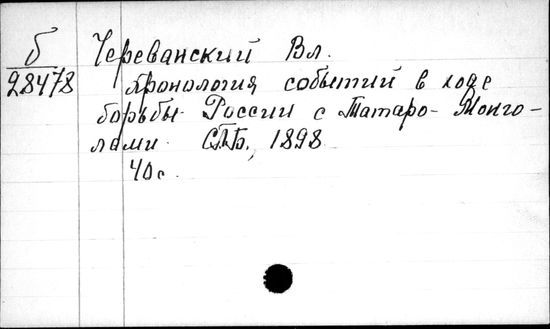 б
28478
Череванский Вл.
Хронология событий в ходе
борьбы России с Татаро-Монго-
лами. СПБ., 1898.
40с.